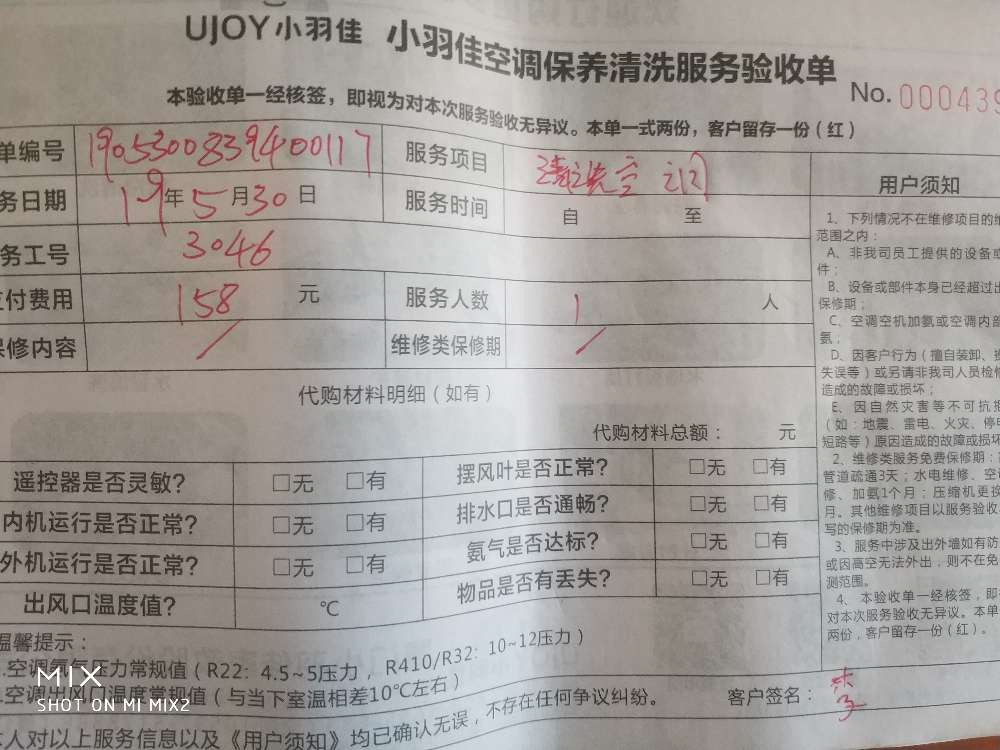 UJOY小羽佳 小羽佳空调保养清洗服务验收单
No. 000439
本验收单一经核签，即视为对本次服务验收无异议。本单一式两份，客户留存一份（红）
单编号 1905300839400117 服务项目 清洗空调
务日期 19年5月30日 服务时间 自 至
务工号 3046
付费用 158 元 服务人数 1 人
保修内容 / 维修类保修期 /
代购材料明细（如有）
代购材料总额： 元
遥控器是否灵敏？ □无 □有 摆风叶是否正常？ □无 □有
内机运行是否正常？ □无 □有 排水口是否通畅？ □无 □有
外机运行是否正常？ □无 □有 氨气是否达标？ □无 □有
出风口温度值？ ℃ 物品是否有丢失？ □无 □有
温馨提示：
.空调氨气压力常规值（R22：4.5~5压力， R410/R32：10~12压力）
.空调出风口温度常规值（与当下室温相差10℃左右）
人对以上服务信息以及《用户须知》均已确认无误，不存在任何争议纠纷。
客户签名：
用户须知
1、下列情况不在维修项目的维
范围之内：
A、非我司员工提供的设备或
件；
B、设备或部件本身已经超过出
保修期；
C、空调空机加氨或空调内部
氨；
D、因客户行为（擅自装卸、搬
失误等）或另请非我司人员检修
造成的故障或损坏；
E、因自然灾害等不可抗拒
（如：地震、雷电、火灾、停电
短路等）原因造成的故障或损坏
2、维修类服务免费保修期：
管道疏通3天；水电维修、空
修、加氨1个月；压缩机更换
月。其他维修项目以服务验收
写的保修期为准。
3、服务中涉及出外墙如有防
或因高空无法外出，则不在免
测范围。
4、本验收单一经核签，即视
对本次服务验收无异议。本单
两份，客户留存一份（红）。
MIX
SHOT ON MI MIX2